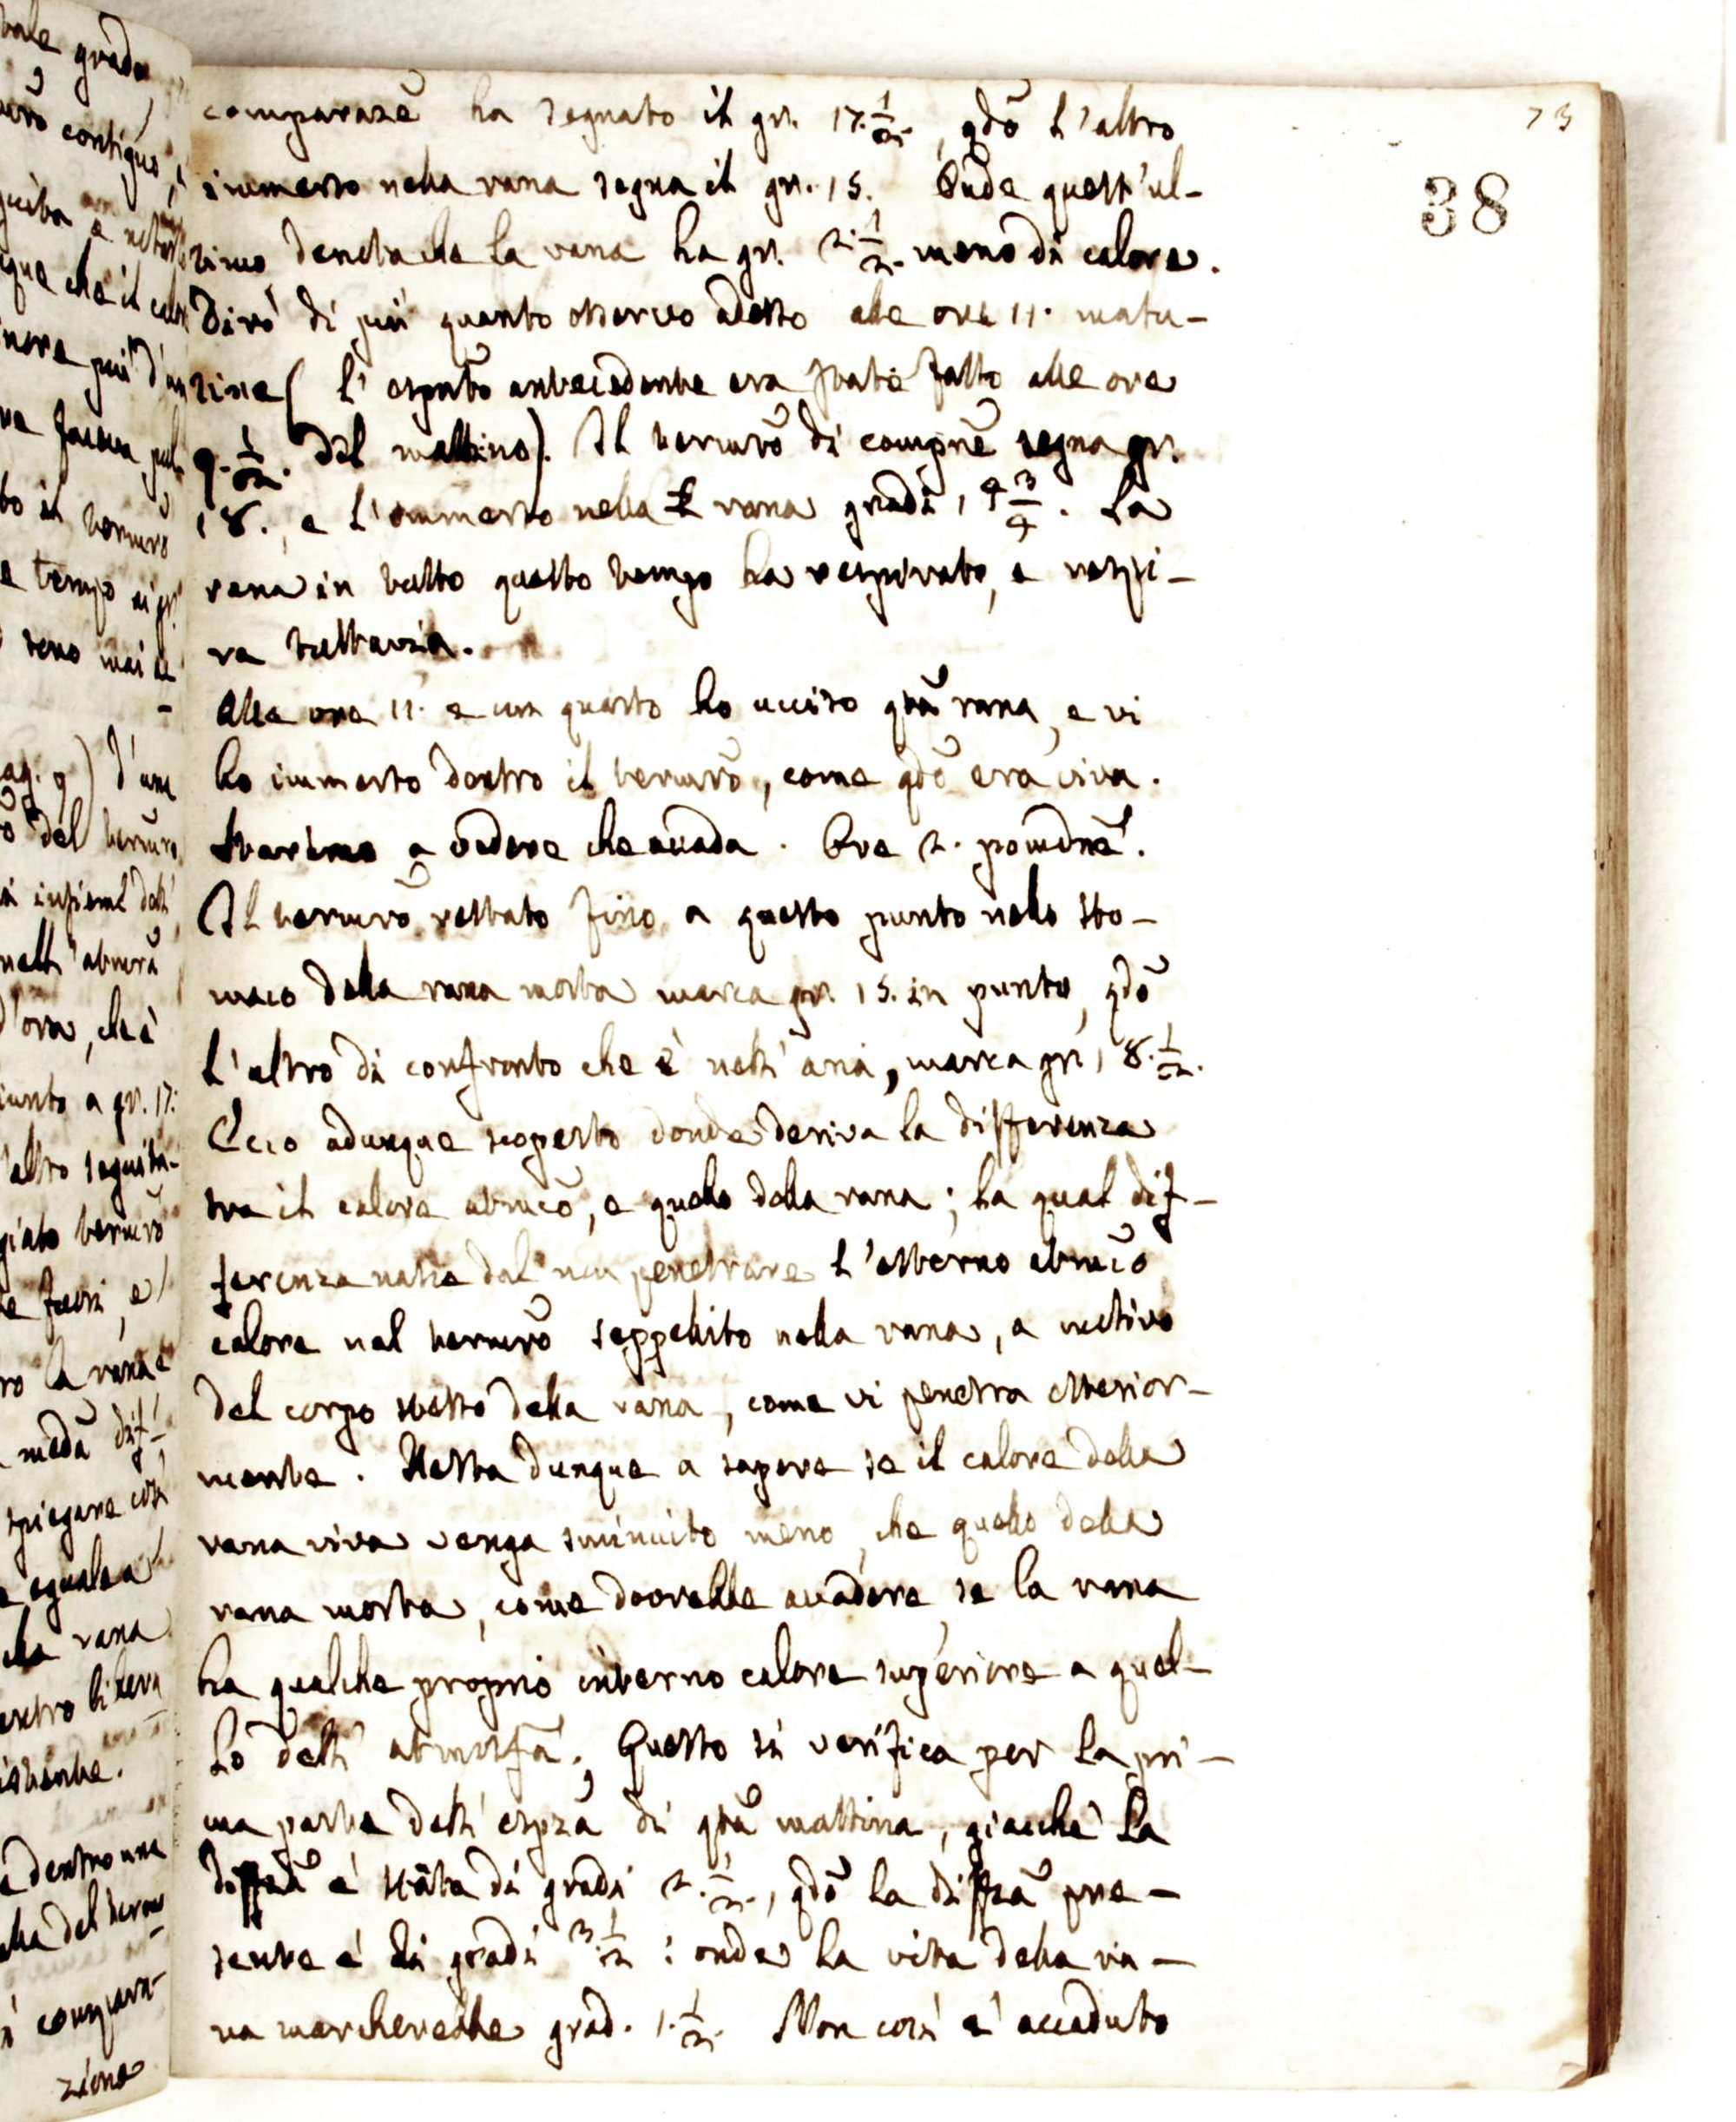 73
38
comparazẽ ha segnato il gr. 17.1/2., qdõ l'altro
immerso nella rana segna il gr. 15. Onde quest'ul-
timo denota che la rana ha gr. 2.1/2. meno di calore.
Dirò di più quanto osservo adesso alle ore 11. matu-
tine ( l'espmto antecedente era stato fatto alle ore
9.1/2. del mattino). Il termrõ di compnẽ segna gr.
18., e l'immerso nella rana gradi 14 3/4. La
rana in tutto questo tempo ha respirato, e respi-
ra tuttavia.
Alle ore 11. e un quarto ho ucciso qtã rana, e vi
ho immerso dentro il termrõ, come qdõ era viva.
Staremo a vedere che accada. Ore 2. pomdnẽ.
Il termrõ restato fino a questo punto nello sto-
maco della rana morta marca gr. 15. in punto, qdõ
l'altro di confronto che è nell'aria, marca gr. 18.1/2.
Ecco adunque scoperto donde deriva la differenza
tra il calore atmcõ, e quello della rana; la qual dif-
ferenza nasce dal non penetrare l'esterno atmcõ
calore nel termrõ seppellito nella rana, a motivo
del corpo stesso della rana, come vi penetra esterior-
mente. Resta dunque a sapere se il calore della
rana viva venga sminuito meno, che quello della
rana morta, come dovrebbe accadere se la rana
ha qualche proprio interno calore superiore a quel-
lo dell'atmosfã. Questo si verifica per la pri-
ma parte dell'espzã di qtã mattina, giacchè la
diffzã è stata di gradi 2.1/2., qdõ la diffzã pre-
sente è di gradi 3.1/2: onde la vita della ra-
na marcherebbe grad. 1.1/2. Non così è accaduto